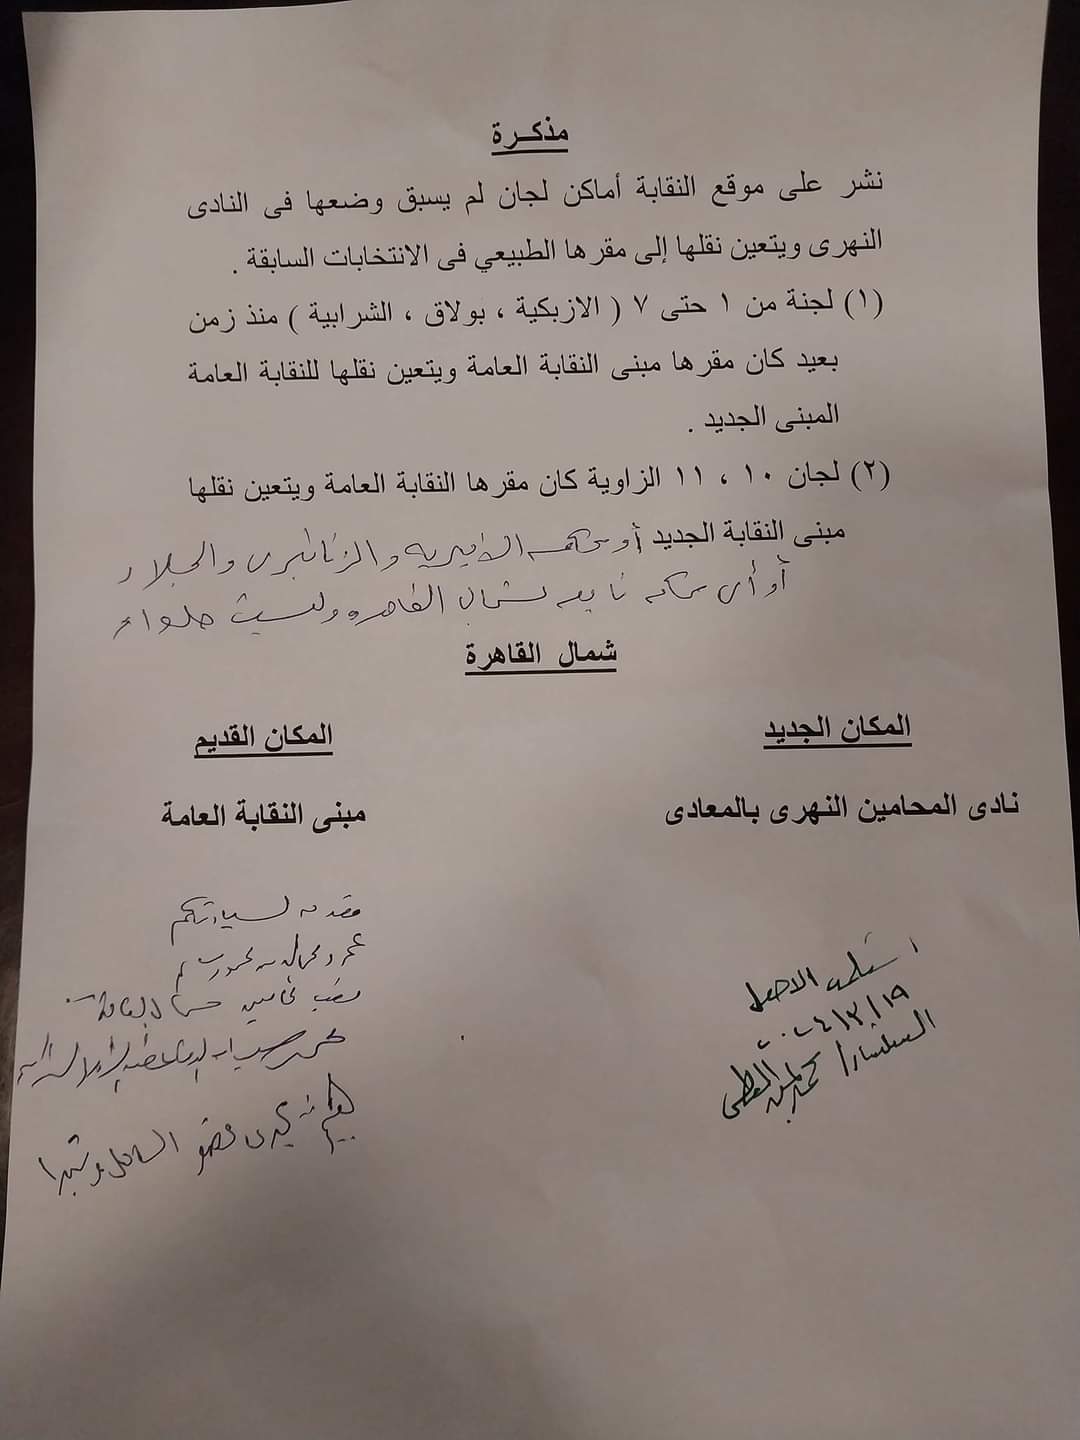 مذكـرة
نشر على موقع النقابة أماكن لجان لم يسبق وضعها فى النادى
النهرى ويتعين نقلها إلى مقرها الطبيعي فى الانتخابات السابقة .
(١) لجنة من ١ حتى ٧ ( الازبكية ، بولاق ، الشرابية ) منذ زمن
بعيد كان مقرها مبنى النقابة العامة ويتعين نقلها للنقابة العامة
المبنى الجديد .
(٢) لجان ١٠ ، ١١ الزاوية كان مقرها النقابة العامة ويتعين نقلها
مبنى النقابة الجديد أو محكمة الأميرية والجلاء
أو أى محكمة تابعة لشمال القاهرة وليست حلوان
شمال القاهرة
المكان الجديد
المكان القديم
نادى المحامين النهرى بالمعادى
مبنى النقابة العامة
مقدمه لسيادتكم
نقيب محامين شمال القاهرة
عضو الساحل وشبرا
استلمت الاصل
٢٠٢٤/٣/١٩
المستشار/ محمد